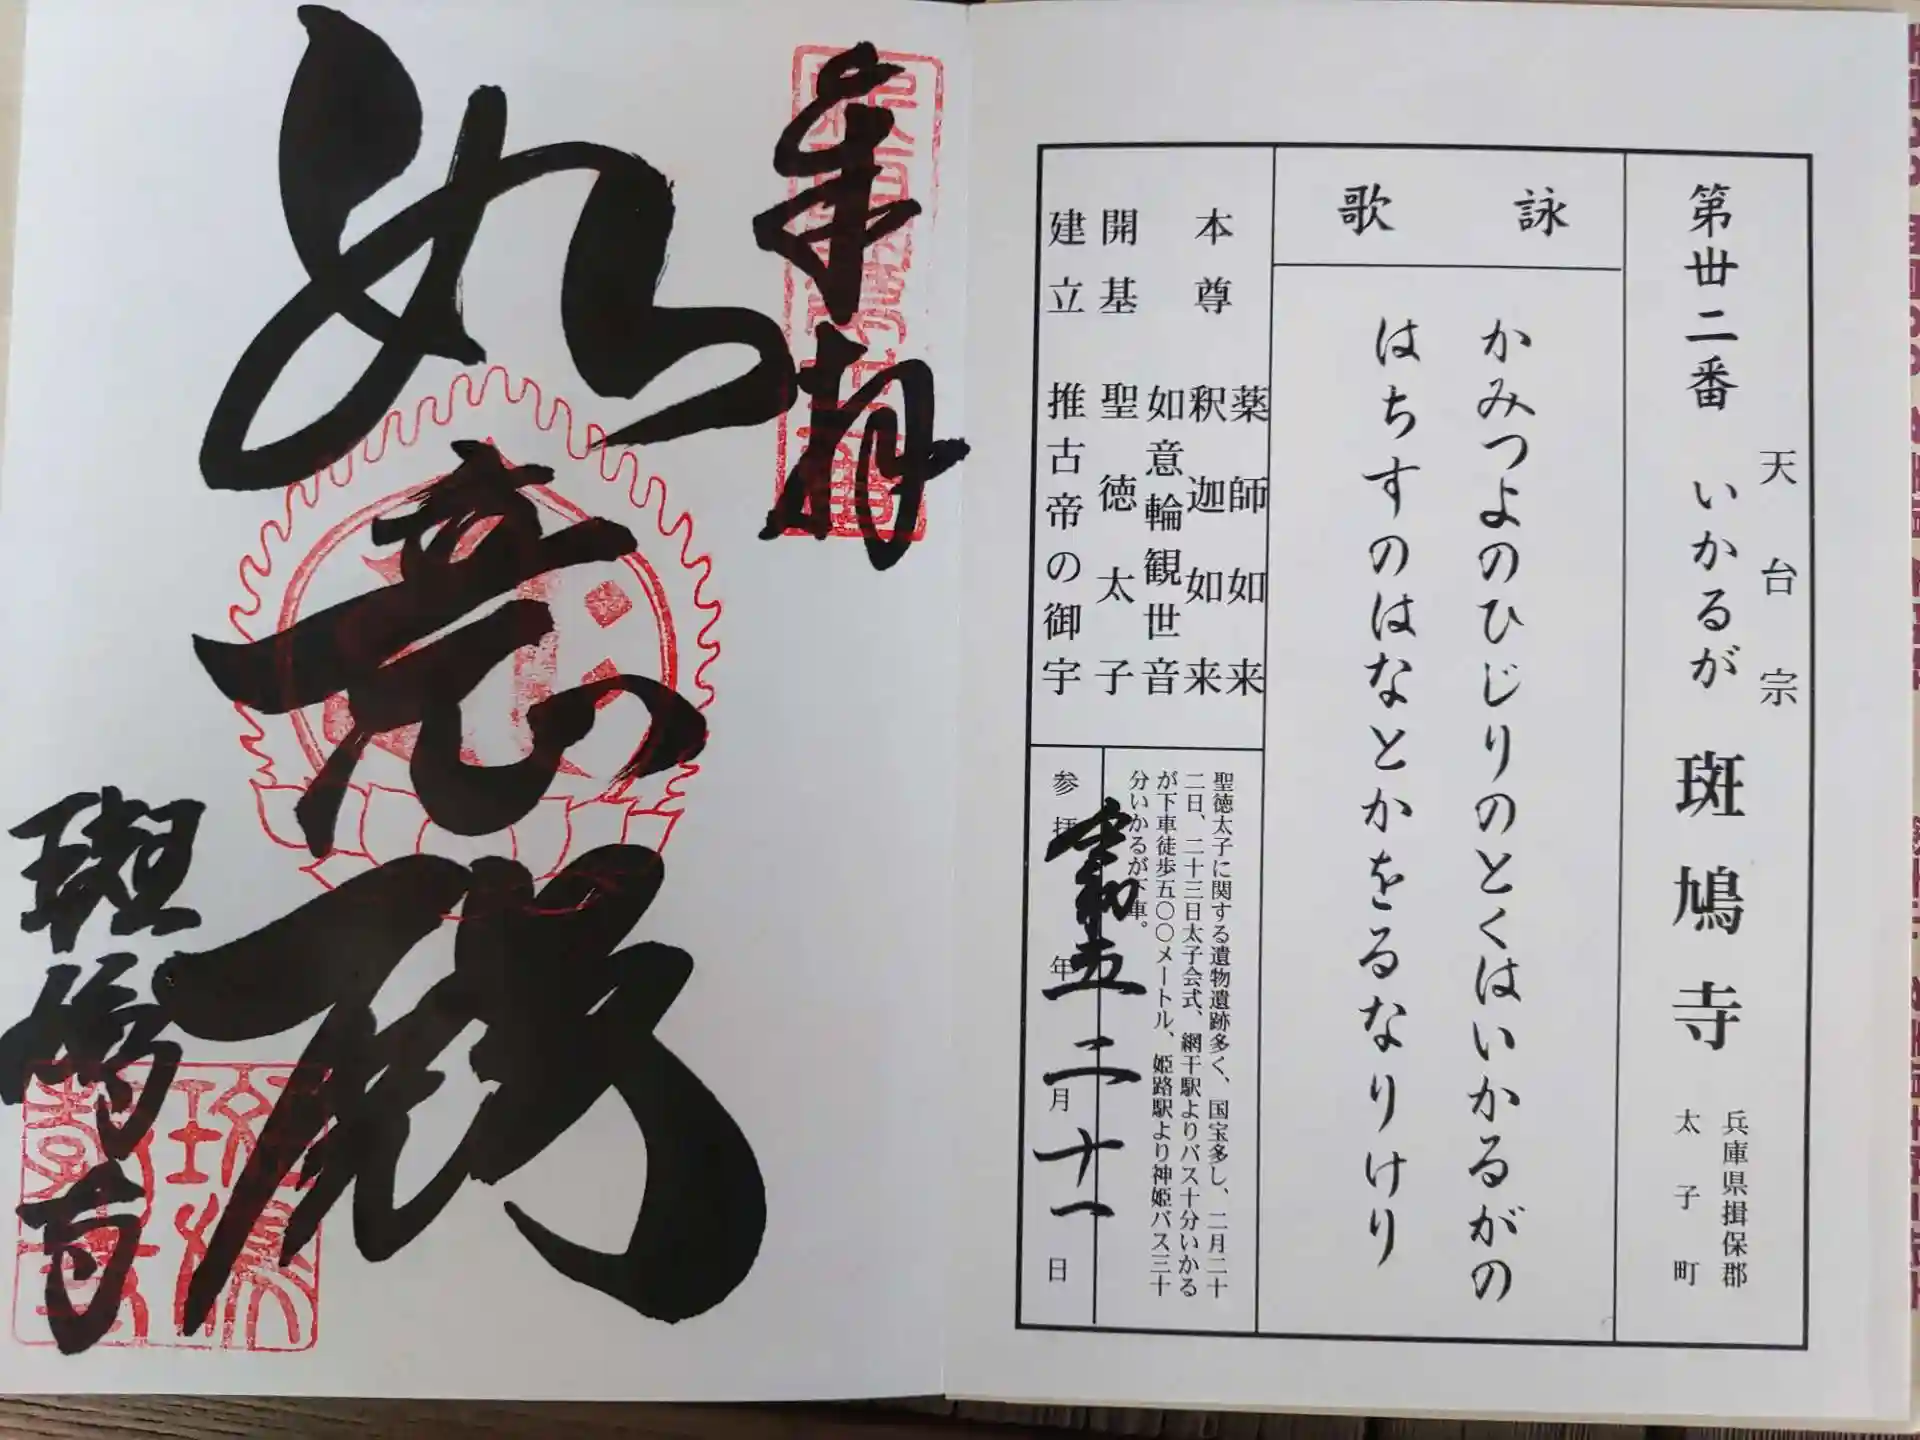 天台宗
第丗二番 いかるが 斑鳩寺
兵庫県揖保郡
太子町
詠歌
かみつよのひじりのとくはいかるがの
はちすのはなとかをるなりけり
本尊 薬師如来
釈迦如来
如意輪観世音
開基 聖徳太子
建立 推古帝の御宇
聖徳太子に関する遺物遺跡多く、国宝多し、二月二十
二日、二十三日太子会式、網干駅よりバス十分いかる
が下車徒歩五〇〇メートル、姫路駅より神姫バス三十
分いかるが下車。
参拝 令和五年二月十一日
奉拝
如意殿
斑鳩寺